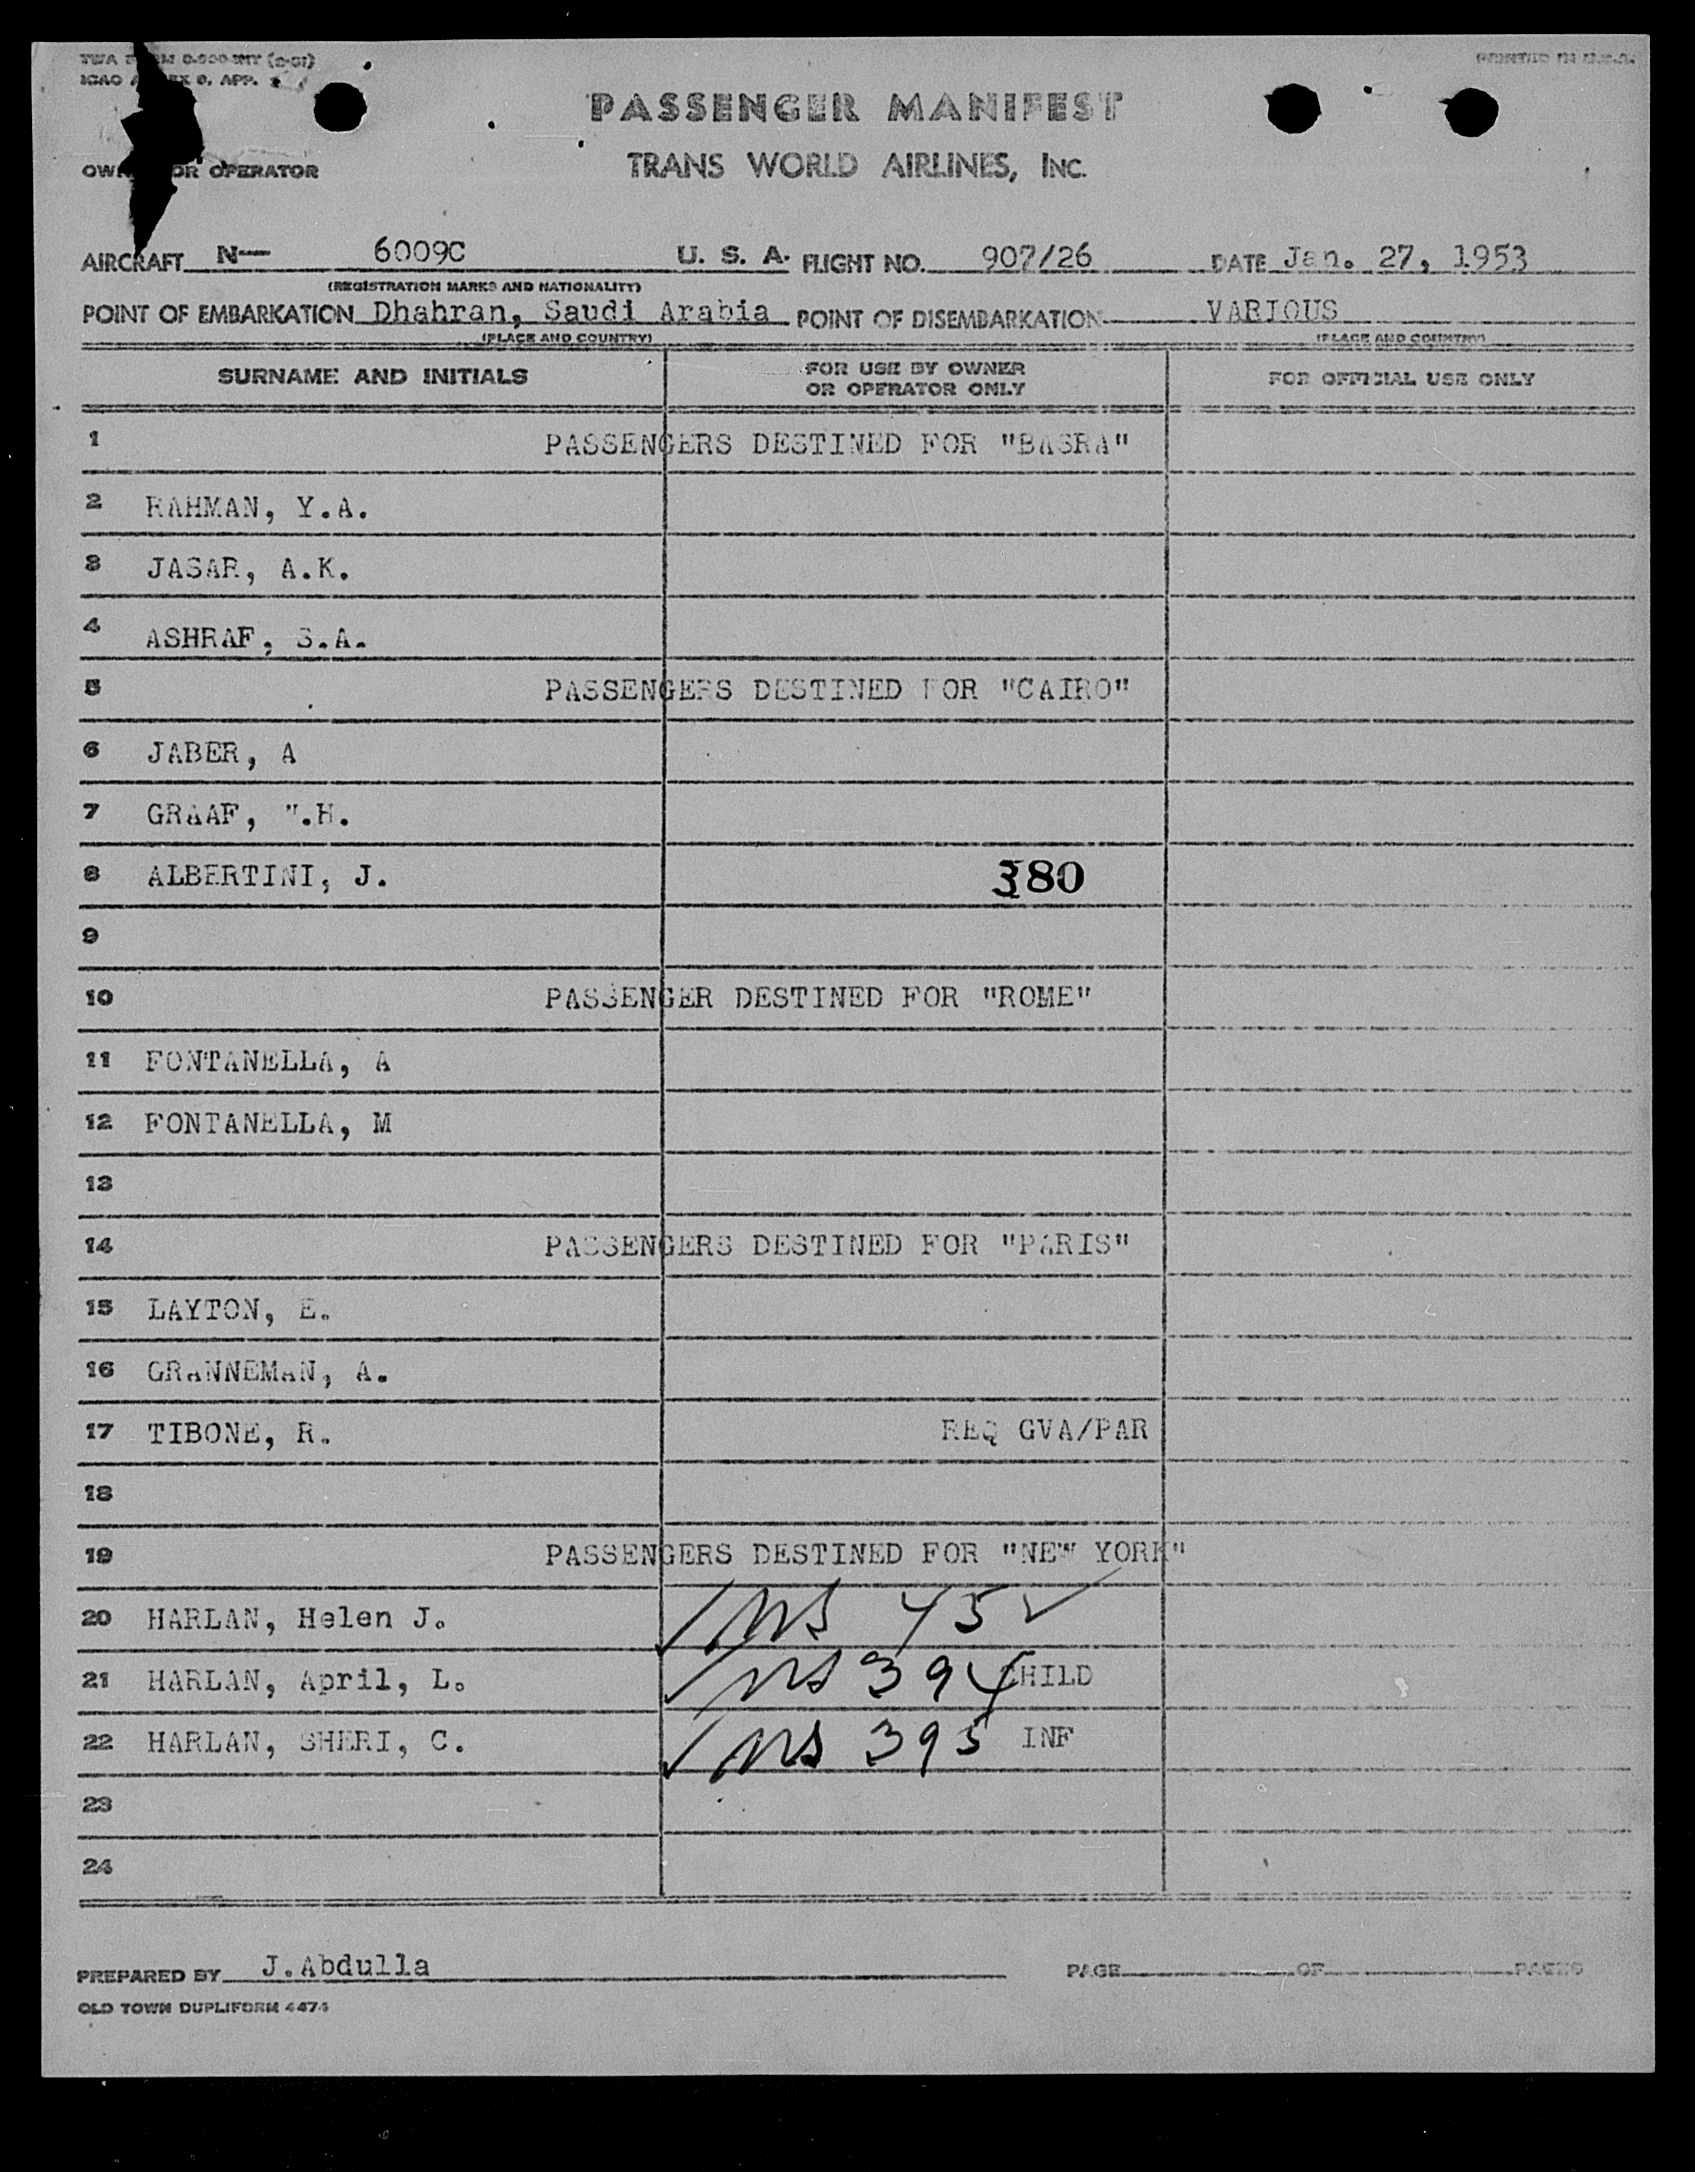 ICAO APP.
PRINTED IN U.S.A.
PASSENGER MANIFEST
TRANS WORLD AIRLINES, INC.
OR OPERATOR
AIRCRAFT N— 6009C U. S. A. FLIGHT NO. 907/26 DATE Jan. 27, 1953
(REGISTRATION MARKS AND NATIONALITY)
POINT OF EMBARKATION Dhahran, Saudi Arabia POINT OF DISEMBARKATION VARIOUS
(PLACE AND COUNTRY) (PLACE AND COUNTRY)
SURNAME AND INITIALS FOR USE BY OWNER OR OPERATOR ONLY FOR OFFICIAL USE ONLY
1 PASSENGERS DESTINED FOR "BASRA"
2 RAHMAN, Y.A.
3 JASAR, A.K.
4 ASHRAF, S.A.
5 PASSENGERS DESTINED FOR "CAIRO"
6 JABER, A
7 GRAAF, .H.
8 ALBERTINI, J. 380
9
10 PASSENGER DESTINED FOR "ROME"
11 FONTANELLA, A
12 FONTANELLA, M
13
14 PASSENGERS DESTINED FOR "PARIS"
15 LAYTON, E.
16 GRANNEMAN, A.
17 TIBONE, R. REQ GVA/PAR
18
19 PASSENGERS DESTINED FOR "NEW YORK"
20 HARLAN, Helen J. ✓ 45 ✓
21 HARLAN, April, L. ✓ 394 CHILD
22 HARLAN, SHERI, C. ✓ 395 INF
23
24
PREPARED BY J.Abdulla PAGE OF PAGES
OLD TOWN DUPLIFORM 4474